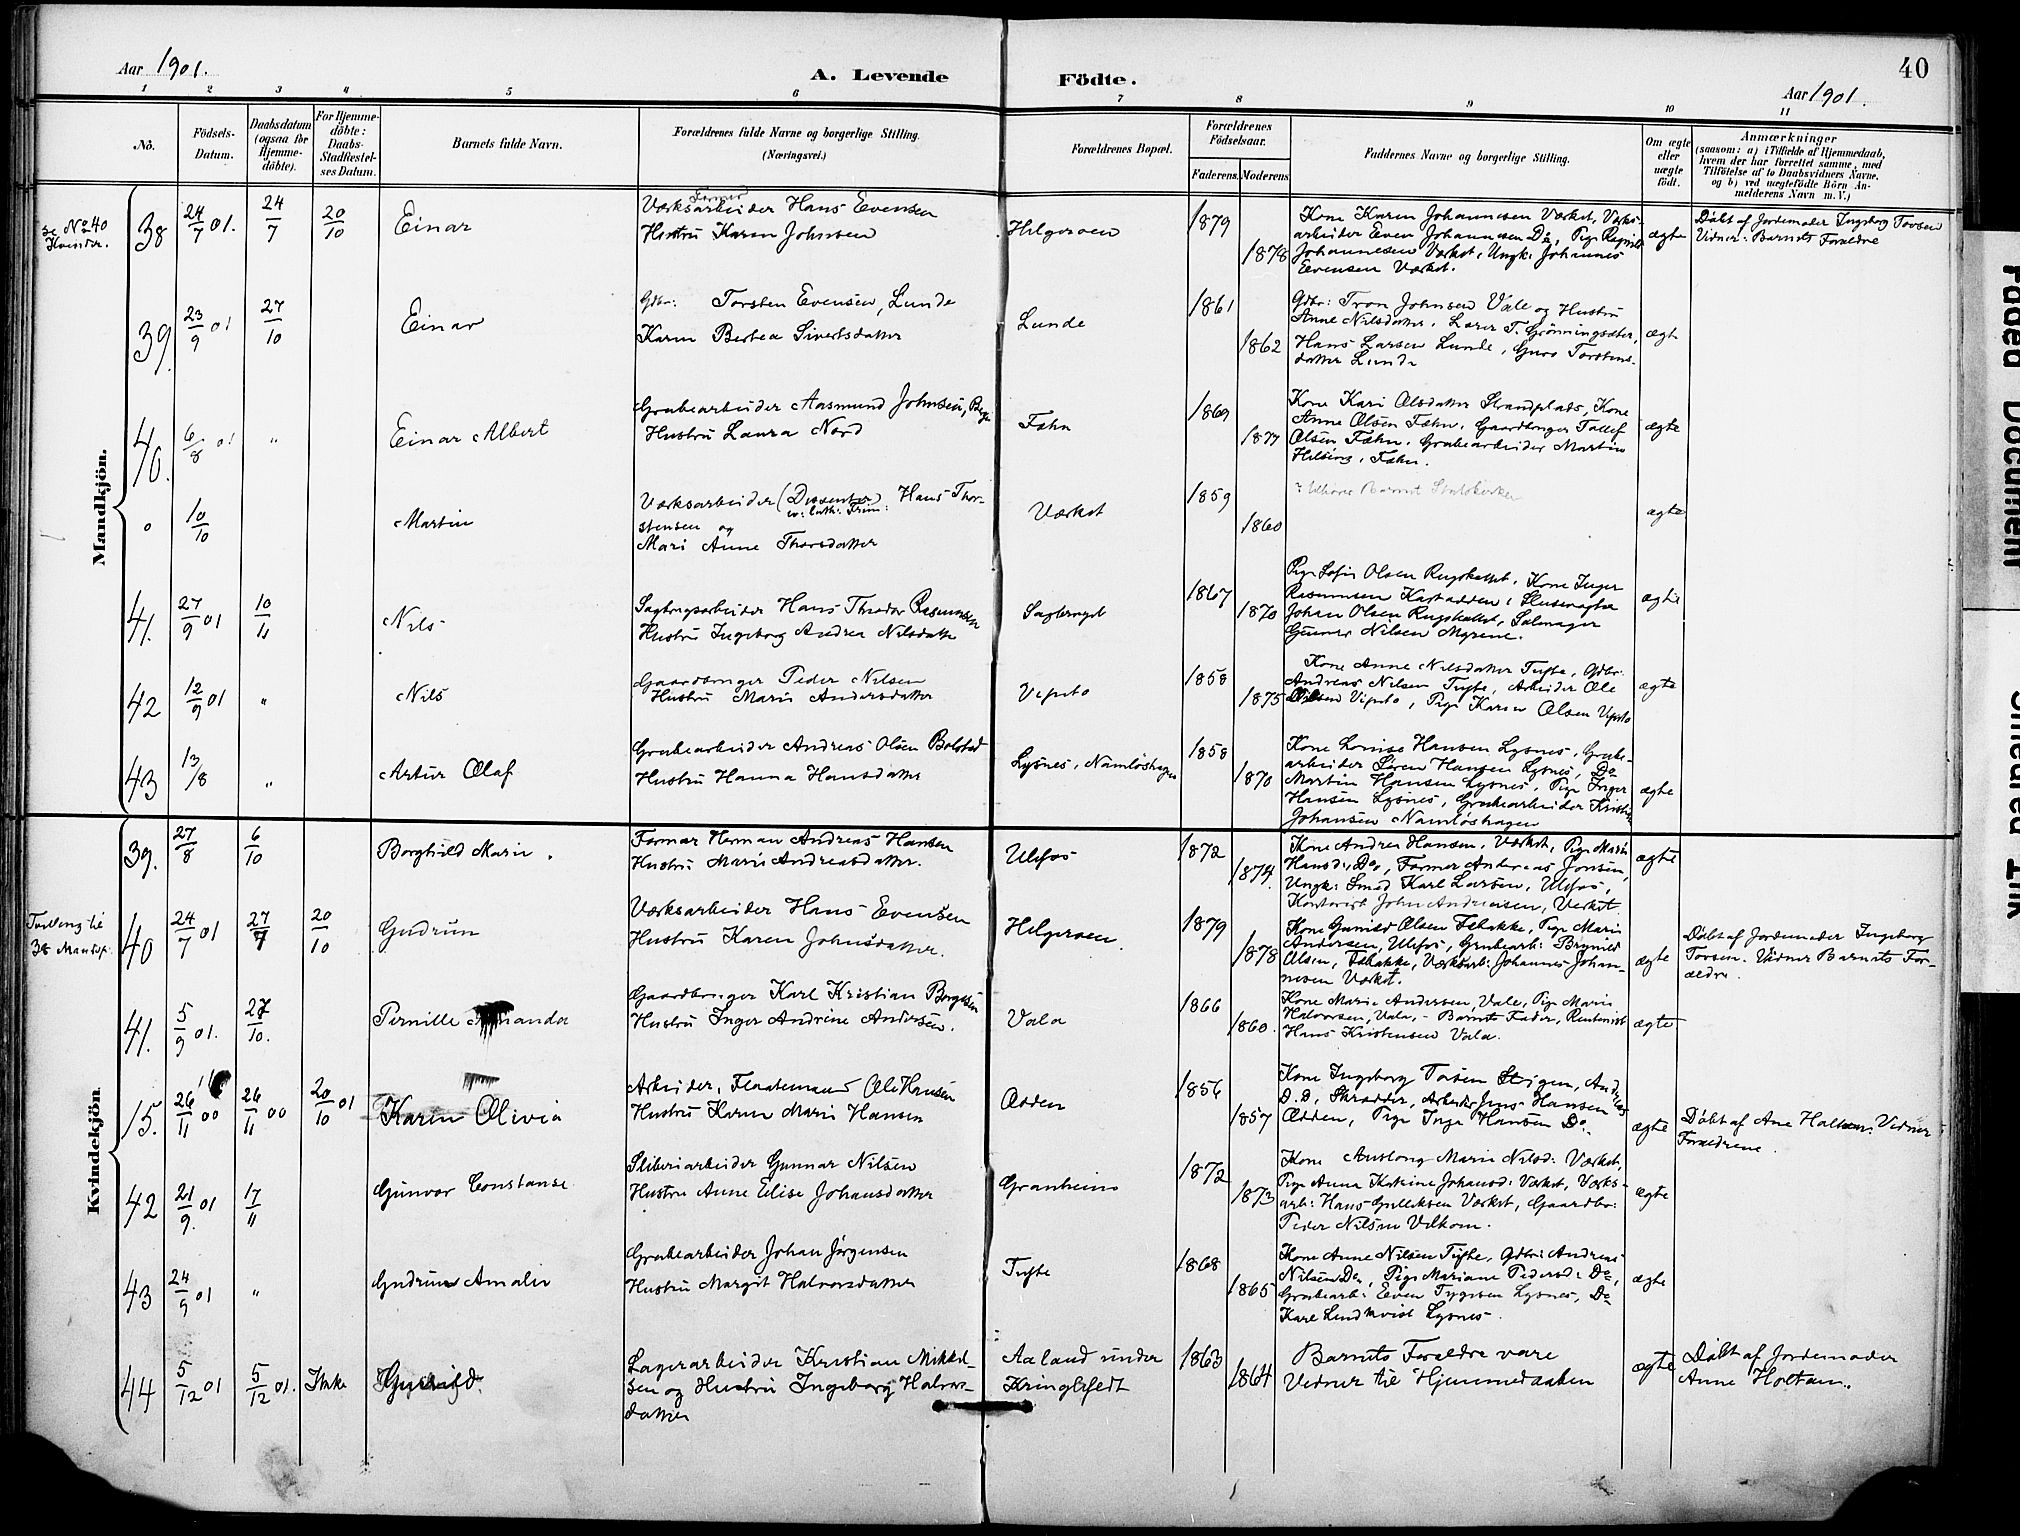 Aar 1901.
A. Levende Födte.
Aar 1901.
40
1 2 3 4 5 6 7 8 9 10 11
Nö.
Födsels-Datum.
Daabsdatum (ogsaa for Hjemmedöbte).
For Hjemmedöbte: Daabs-Stadfæstelses Datum.
Barnets fulde Navn.
Forældrenes fulde Navne og borgerlige Stilling.
(Næringsvei.)
Forældrenes Bopæl.
Forældrenes Födselsaar.
Faderens. Moderens.
Faddernes Navne og borgerlige Stilling.
Om ægte eller uægte födt.
Anmærkninger
(saasom: a) i Tilfælde af Hjemmedaab, hvem der har forrettet samme, med Tilföielse af to Daabsvidners Navne. og b) ved uægtefödte Börn Anmelderens Navn m.V.)
Mandkjön.
se No 40 Kvinder.
38 24/7 01. 24/7 20/10 Einar
Værksarbeider Hans Evensen
Hustru Karen Johnsen
Helgeroen 1879 1878
Kone Karen Johannesen Værket, Værks-
arbeider Even Johannesen Do, Pige
Johannesen Værket, Ungk: Johannes
Evensen Værket.
ægte
Døbt af Jordemoder Ingeborg Tovsen
Vidner: Barnets Forældre
39. 23/9 01 27/10 Einar
Gdbr: Torsten Evensen, Lunde
Karen Bertea Sivertsdatter
Lunde 1861 1862
Gdbr: Tron Johnsen Vale og Hustru
Anne Nilsdatter, Lærer T. Grønningsæter,
Hans Larsen Lunde, Guro Torstens-
datter Lunde
ægte
40. 6/8 01 " Einar Albert
Grubearbeider Aasmund Johnsen,
Hustru Laura Nord
Fæhn 1869 1877
Kone Kari Olsdatter Strandplads, Kone
Anne Olsen Fæhn, Gaardbruger Tollef
Olsen Fæhn, Grubearbeider Martin
Fæhn.
ægte
o 10/10 Martin
Værksarbeider (Dissenter) Hans Thor-
stensen og
Mari Anne Thorsdatter
Værket 1859 1860
ægte
41. 27/9 01 10/11 Nils
Sagbrugsarbeider Hans Theodor Rasmussen
Hustru Ingeborg Andrea Nilsdatter
Sagbruget 1867 1870
Pige Sofie Olsen Rugskallet, Kone Inger
Rasmussen Kastadden, Slusevogter
Johan Olsen Rugskallet, Salmager
Gunnar Nilsen Myrene.
ægte
42 12/9 01 " Nils
Gaardbruger Peder Nilsen
Hustru Maren Andersdatter
Vipeto 1858 1875
Kone Anne Nilsdatter Tufte, Gdbr:
Andreas Nilsen Tufte, Arbeider Ole
Nilsen Vipeto, Pige Karen Olsen Vipeto
ægte
43 13/8 " Artur Olaf
Grubearbeider Andreas Olsen Bolstad
Hustru Hanna Hansdatter
Lysnes, Namløshagen 1858 1870
Kone Lovise Hansen Lysnes, Grube-
arbeider Søren Hansen Lysnes, Do
Martin Hansen Lysnes, Pige Inger
Hansen Lysnes, Grubearbeider Kristian
Johansen Namløshagen
ægte
Kvindekjön
39. 27/8 6/10 Borghild Marie.
Former Herman Andreas Hansen
Hustru Maren Andreasdatter.
Ulefos 1872 1874.
Kone Andrea Hansen, Værket, Pige Maren
Hansd:, Do, Former Andreas Jonsen,
Ungk: Smed Karl Larsen, Ulefos,
Kontorist John Andreasen, Værket.
ægte
Tvilling til 38 Mandkj.
40 24/7 01 27/7 20/10 Gudrun
Værksarbeider Hans Evensen
Hustru Karen Johnsdatter.
Helgeroen 1879 1878
Kone Gunild Olsen Febakke, Pige Maren
Andersen, Ulefos, Grubearb: Brynild
Olsen, Febakke, Værksarb: Johannes Johan-
nesen Værket.
ægte
Døbt af Jordemoder Ingeborg
Tovsen. Vidner Barnets For-
ældre.
41. 5/9 01. 27/10. Pernille Amanda
Gaardbruger Karl Kristian Borgesen
Hustru Inger Andrine Andersen.
Vala 1866 1860.
Kone Maren Andersen, Vale, Pige Maren
Halvorsen, Vala, - Barnets Fader, Rentenist
Hans Kristensen Vala.
ægte
15. 26/11 00 26/11 00 20/10 01 Karen Olivia
Arbeider, Flaatemand Ole Hansen
Hustru Karen Marie Hansen
Odden 1856 1857
Kone Ingeborg Tovsen Stigen, Andreas
D.D, Skrædder, Arbeider Jens Hansen
Odden, Pige Inga Hansen Do.
ægte
Døbt af Ane Holtan. Vidner
Forældrene.
42 21/9. 01 17/11 Gunvor Constanse
Sliberiarbeider Gunnar Nilsen
Hustru Anne Elise Johansdatter
Granheim 1872 1873
Kone Anslaug Marie Nilsd: Værket,
Pige Anna Kristine Johansd: Værket, Værks-
arb: Hans Gulleksen Værket, Gaardbr:
Peder Nilsen Velkom.
ægte
43 24/9 01 " Gudrun Amalie
Grubearbeider Johan Jørgensen
Hustru Margit Halvorsdatter
Tufte 1868 1865
Kone Anne Nilsen Tufte, Gdbr: Andreas
Nilsen Do, Pige Mariane Pedersd: Do,
Grubearb: Even Tygesen Lysnes, Do
Karl Lindkvist Lysnes.
ægte
44 5/12 01 5/12 01. Ikke Gunhild.
Lagerarbeider Kristian Mikkel-
sen og Hustru Ingeborg Halvors-
datter
Aaland under
Kringlefedt
1863 1864
Barnets Forældre vare
Vidner til Hjemmedaaben
ægte
Døbt af Jordemoder
Anne Holtan.
Faded Document
Smeared Ink